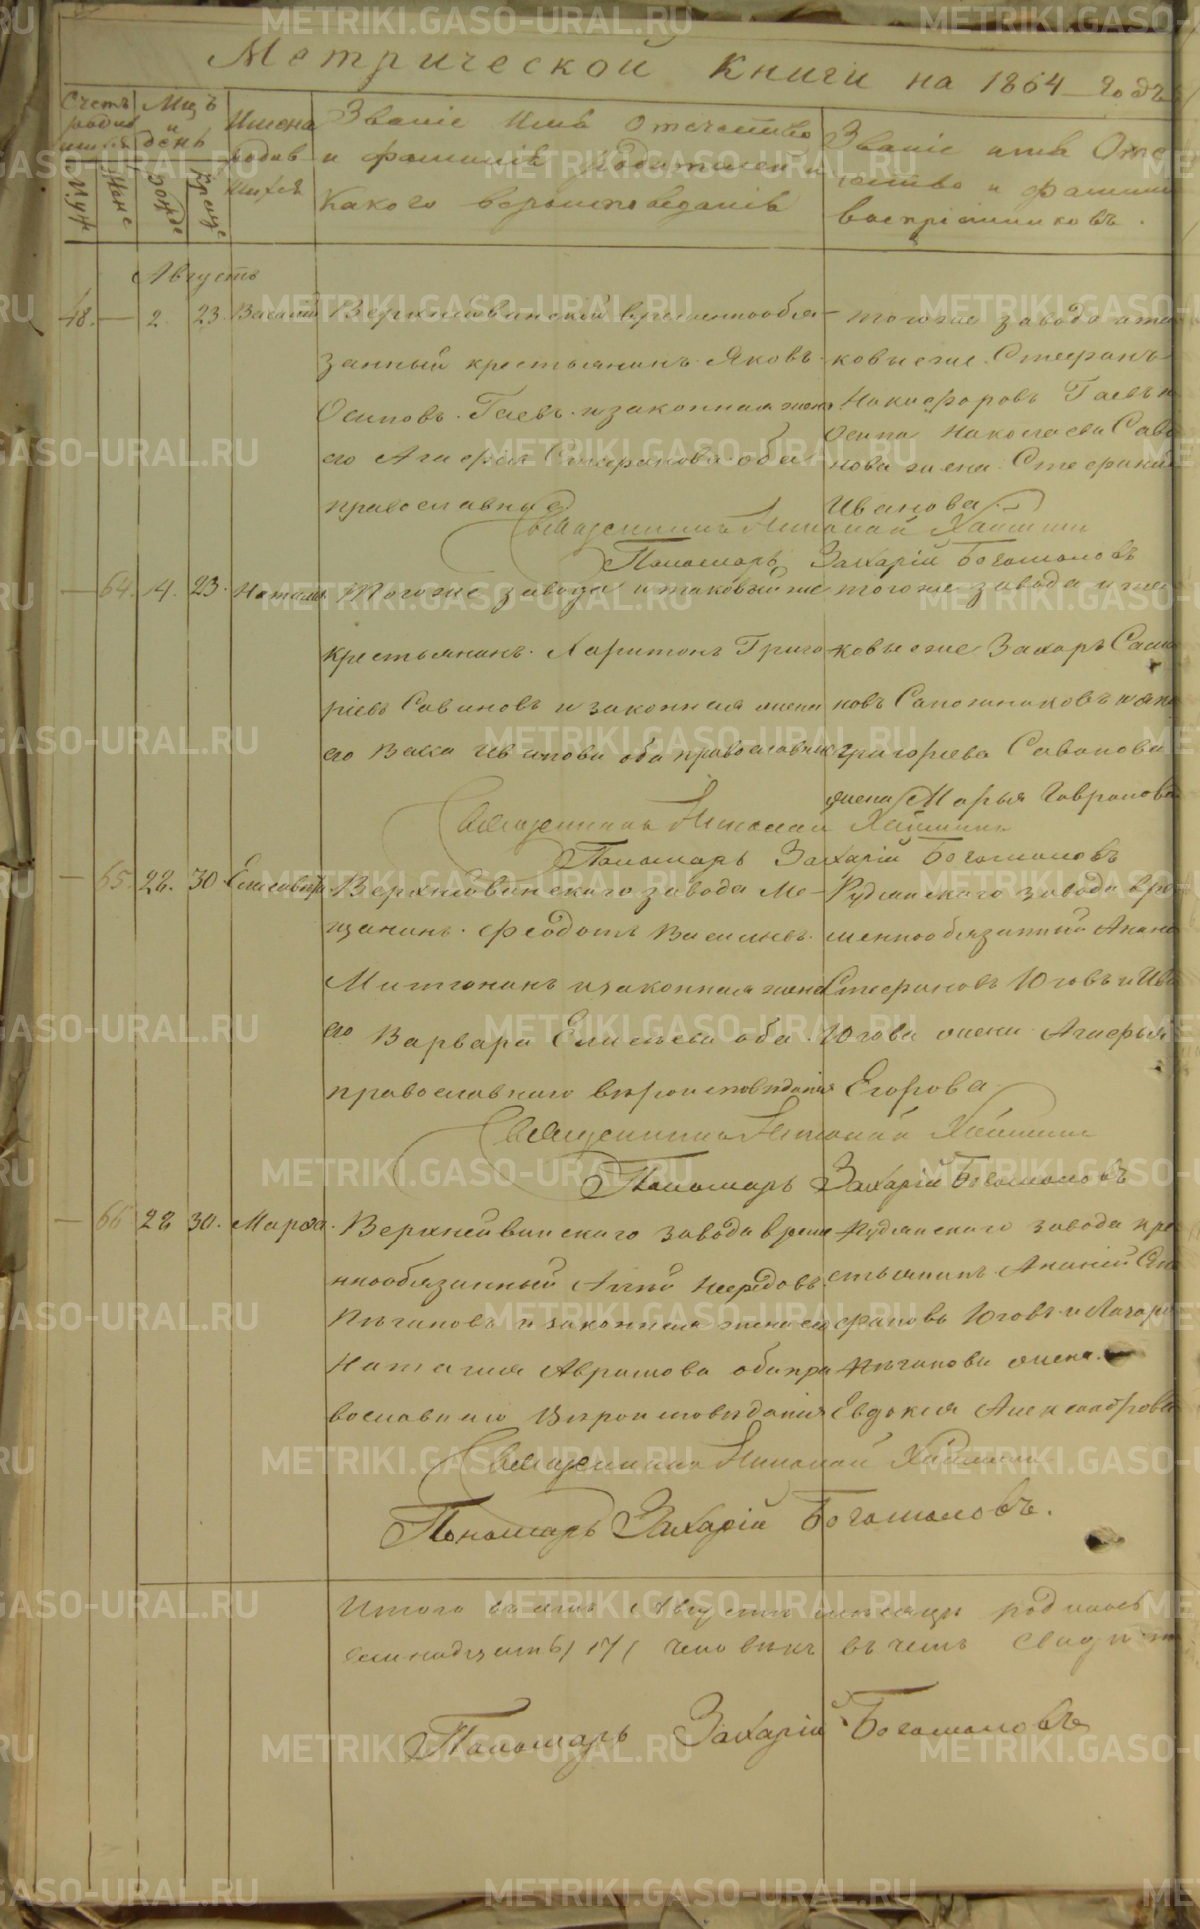 Метрической Книги на 1864 годъ
Счетъ родив шихся
Муж Женс
Мцъ и день
рожде Креще
Имена родив шихся
Званіе Имя Отчество
и фамилія родителей и
Какого вероисповеданія
Званіе имя Отче
ство и фамилія
воспріемниковъ.
Августъ
48. — 2. 23. Василій
Верхнейвинскій временнообя-
занный крестьянинъ Яковъ
Осиповъ Гаевъ и законная жена
его Агафья Стефанова оба
православные
того же завода и та
ковые же Стефанъ
Никифоровъ Гаевъ и
Осипа Николаева Сави
нова жена Стефанида
Иванова.
Священникъ Николай
Пономарь Захарій Богомоловъ
— 64. 4. 23. Наталья
Того же завода и таковый же
крестьянинъ Харитонъ Григо-
ріевъ Савиновъ и законная жена
его Васса Иванова оба православные
того же завода и та
ковые же Захаръ
новъ Сапожниковъ и
Григорьева Савинова
жена Марья Гаврилова
Священникъ Николай
Пономарь Захарій Богомоловъ
— 65. 28. 30 Елисавета
Верхнейвинскаго завода Ме-
щанинъ Феодотъ Васильевъ
и законная жена
его Варвара Елисеева оба
православнаго вероисповеданія
Рудянскаго завода вре
меннообязанный Анан
Стефановъ Юговъ и Ива
Югова жена Агафья
Егорова
Священникъ Николай
Пономарь Захарій Богомоловъ
— 66 28 30. Марфа.
Верхнейвинскаго завода време
ннообязанный
Пигановъ и законная жена его
Наталия Аврамова оба пра
вославнаго Вероисповеданія
Рудянскаго завода кре
стьянинъ Ананій Сте
фановъ Юговъ и Лазаря
Пиганова жена
Евдокия Александрова
Священникъ Николай
Пономарь Захарій Богомоловъ.
Итого въ Августе месяце родилось
семнадцать /17/ человекъ въ чемъ свидет
Пономарь Захарій Богомоловъ
METRIKI.GASO-URAL.RU